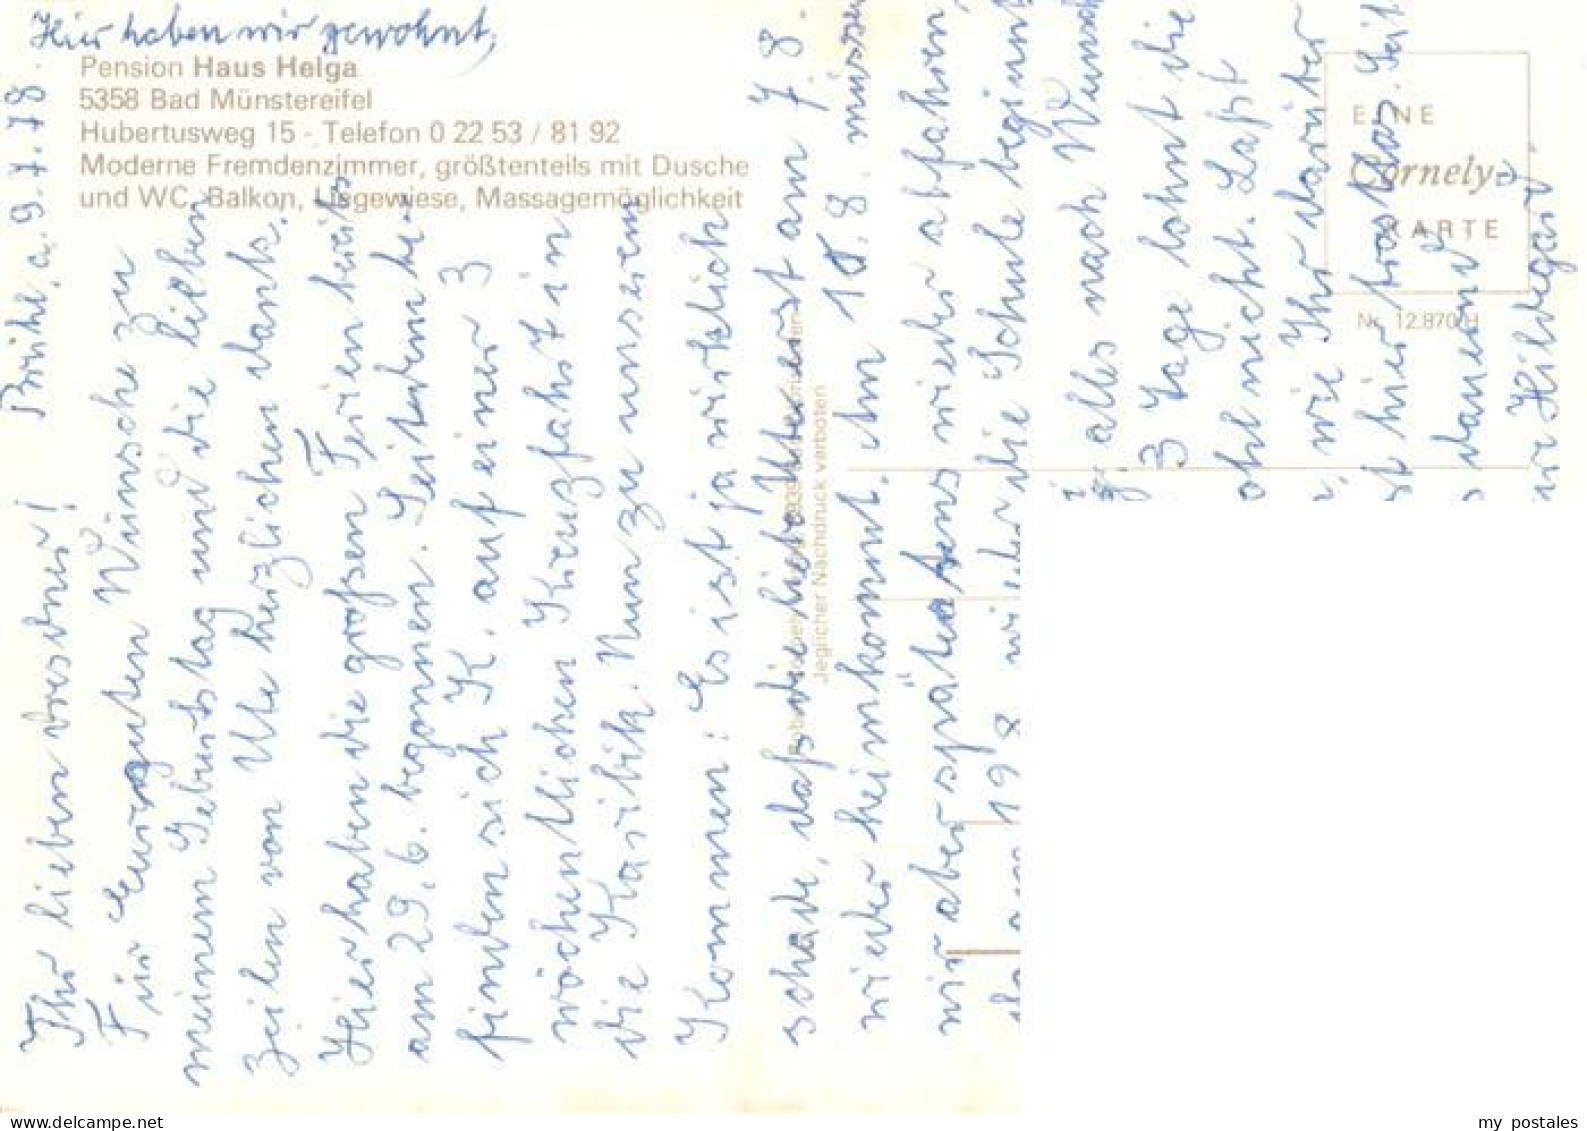 Hier haben wir gewohnt,
Pension Haus Helga
5358 Bad Münstereifel
Hubertusweg 15 - Telefon 0 22 53 / 81 92
Moderne Fremdenzimmer, größtenteils mit Dusche
und WC, Balkon, Liegewiese, Massagemöglichkeit
Brühl, d. 9.7.78.
Ihr lieben Dresdner!
Für Eure guten Wünsche zu
meinem Geburtstag und die lieben
Zeilen von Ute herzlichen Dank.
Hier haben die großen Ferien bereits
am 29.6. begonnen. Seitdem be-
finden sich K. auf einer 3
wöchentlichen Kreuzfahrt in
die Karibik. Nun zu unserem
Kommen: Es ist ja wirklich
schade, daß die liebe Ute erst am 7.8.
wieder heimkommt. Am 10.8. müssen
wir aber spätestens wieder abfahren,
die Schule beginnt
alles nach Wunsch
3 Tage lohnt die
ohl nicht. Laßt
, wie Ihr darüber
st hier trostlos. Seit
s dauernd
Hildegard
EINE
Cornely-
KARTE
Nr. 12.870/H
Jeglicher Nachdruck verboten
my postales